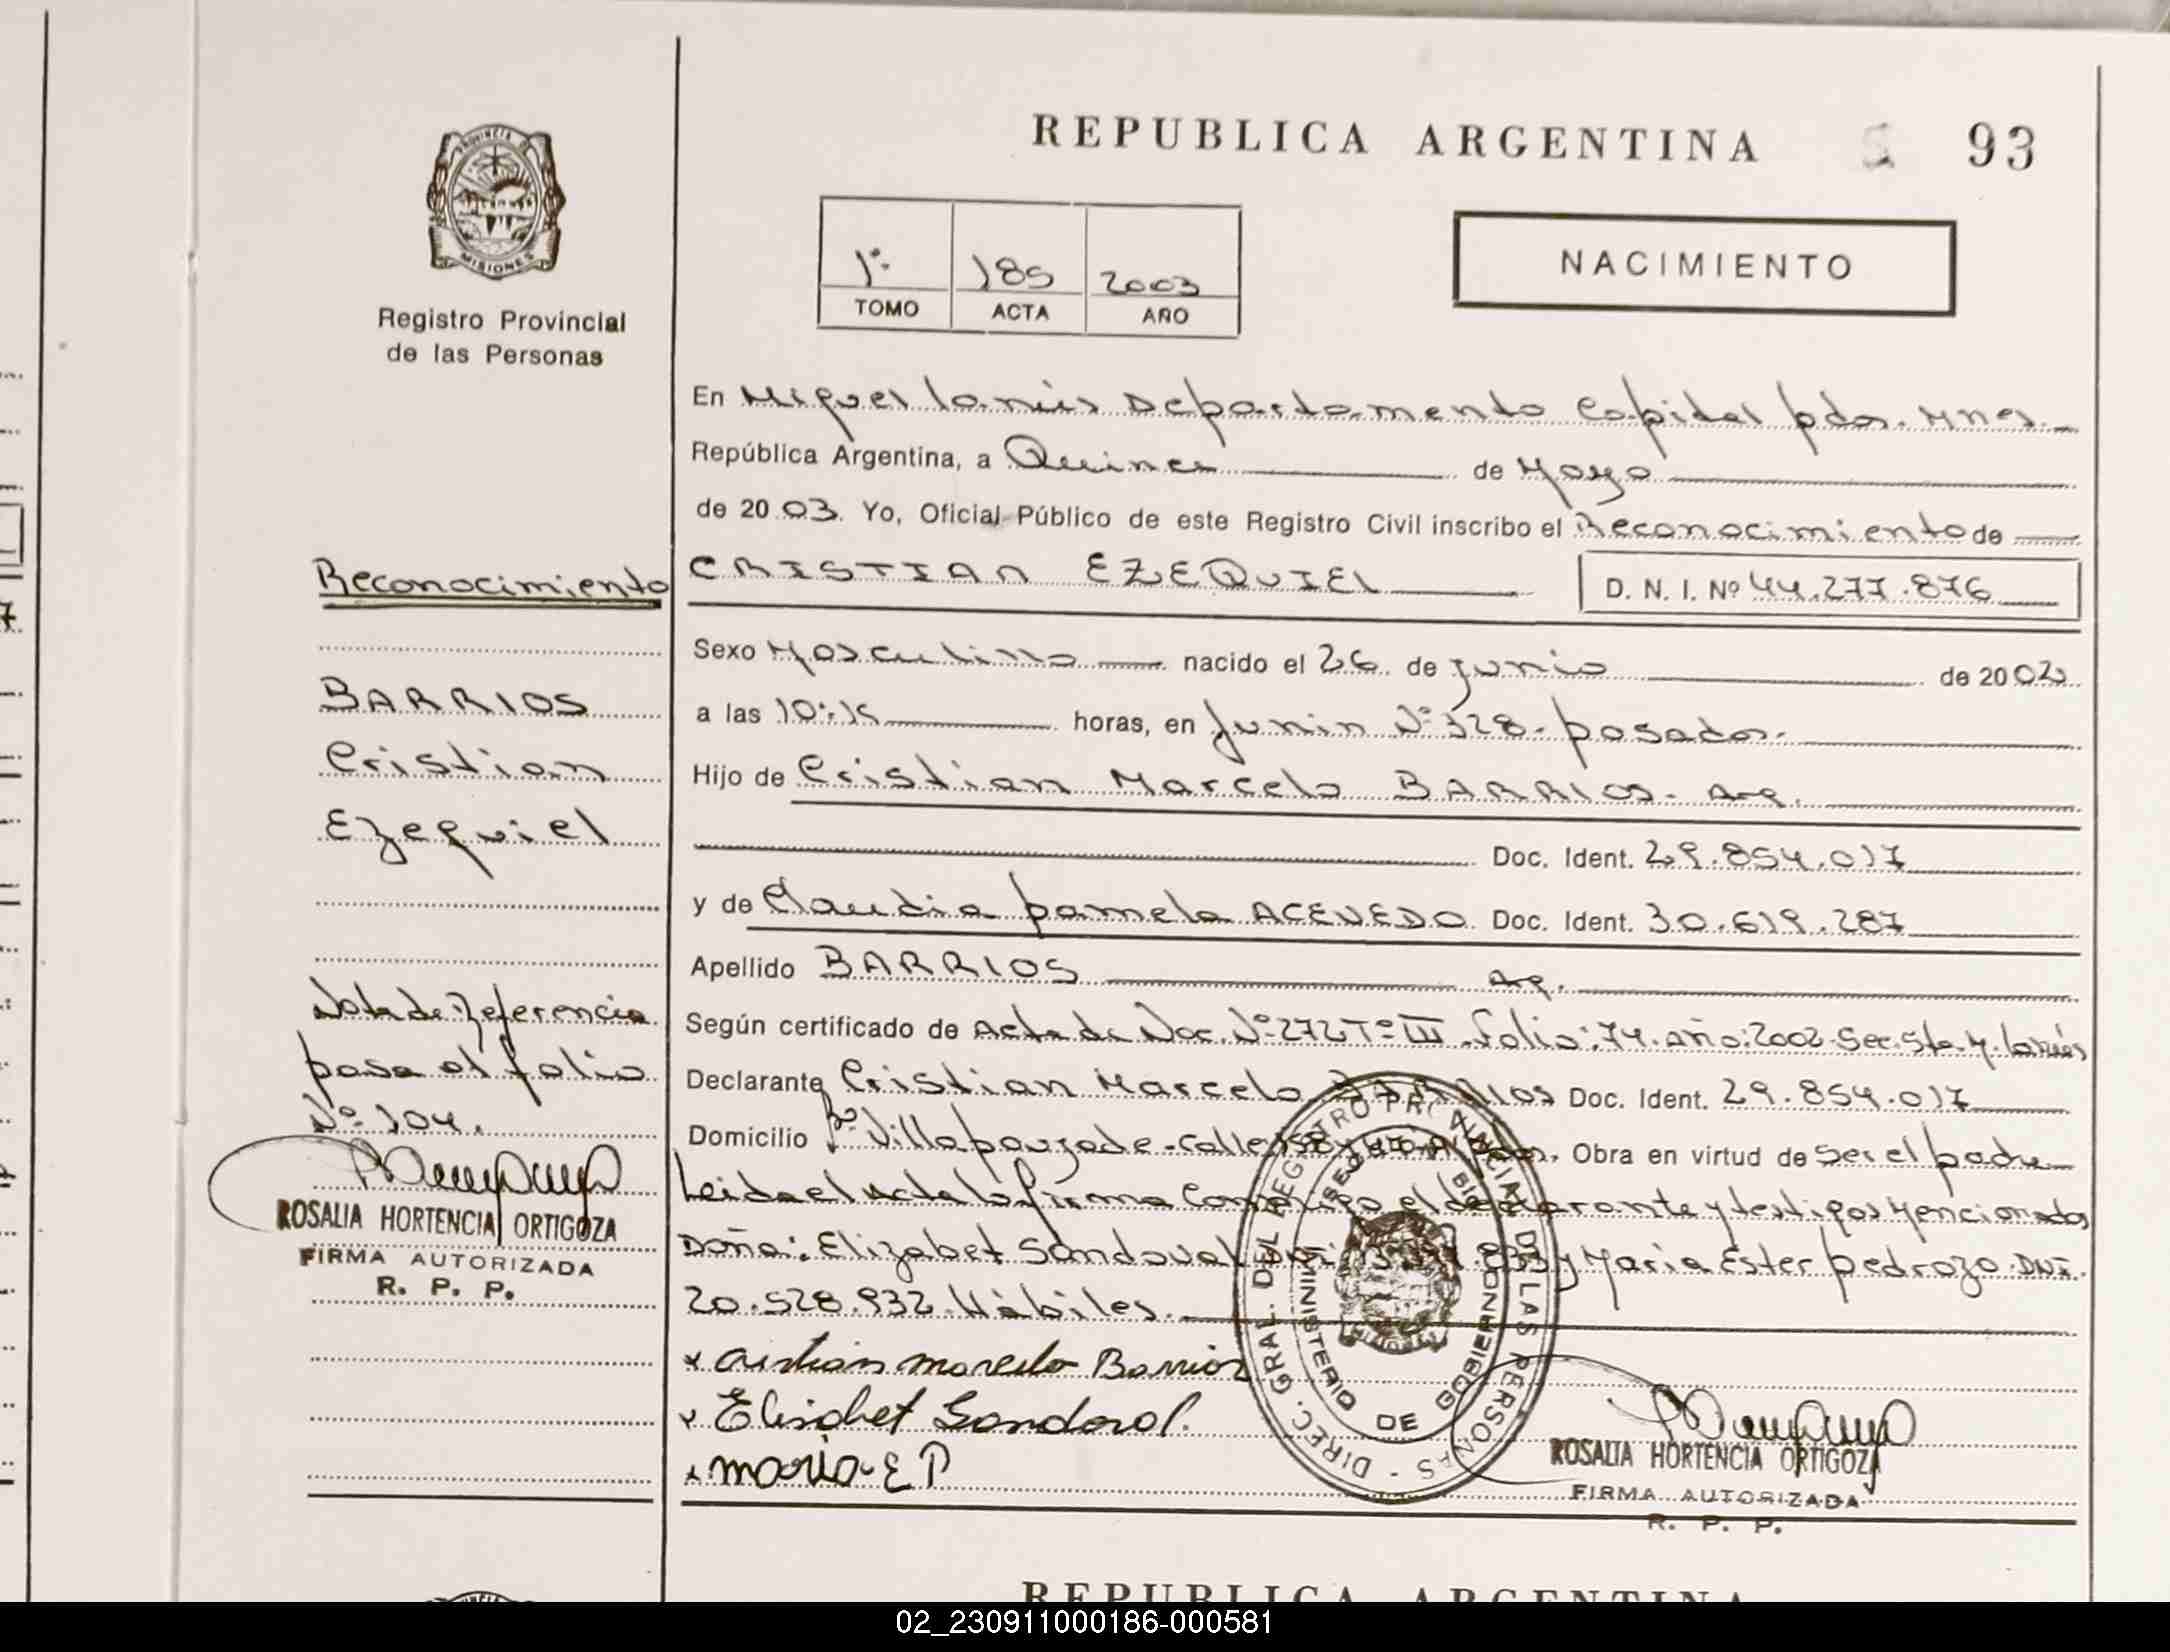 REPUBLICA ARGENTINA 93
PROVINCIA DE MISIONES
Registro Provincial
de las Personas
1º 185 2003
TOMO ACTA AÑO
NACIMIENTO
En Miguel Lanús Departamento Capital pdas. Mnes.
República Argentina, a Quince de Mayo
de 2003. Yo, Oficial Público de este Registro Civil inscribo el Reconocimiento de
CRISTIAN EZEQUIEL D. N. I. Nº 44.277.876
Sexo Masculino nacido el 26 de junio de 2002
a las 10:15 horas, en Junin Nº 328 - posadas.
Hijo de Cristian Marcelo BARRIOS - Arg.
Doc. Ident. 29.854.017
y de Claudia pamela ACEVEDO Doc. Ident. 30.619.287
Apellido BARRIOS Arg.
Según certificado de Acta de Nac. Nº 272 Tº III Folio: 74. Año: 2002 - Sec. Sta. M. Lanús
Declarante Cristian Marcelo BARRIOS Doc. Ident. 29.854.017
Domicilio Bº Villa poujade - calle 158 Obra en virtud de ser el padre
Leida el Acta la firma conmigo el declarante y testigos Mencionados
Doña: Elizabet Sandoval y Maria Ester pedrozo DNI.
20.528.932 Hábiles.
x Cristian marcelo Barrios
x Elisabet Sandoval.
x maria E P
Reconocimiento
BARRIOS
Cristian
Ezequiel
Nota de Referencia
pasa al folio
Nº 104.
ROSALIA HORTENCIA ORTIGOZA
FIRMA AUTORIZADA
R. P. P.
DIREC. GRAL. DEL REGISTRO PROVINCIAL DE LAS PERSONAS
MINISTERIO DE GOBIERNO
ROSALIA HORTENCIA ORTIGOZA
FIRMA AUTORIZADA
R. P. P.
REPUBLICA ARGENTINA
02_230911000186-000581